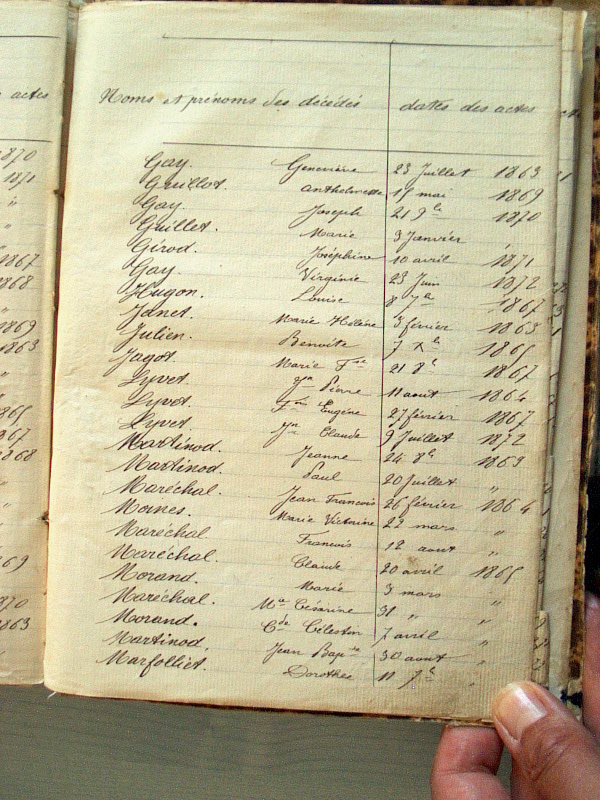 actes
Noms et prénoms des décédés dates des actes
1870
1871
"
"
1867
1868
"
1869
1863
"
"
1868
"
1870
1863
Gay. Geneviève 23 Juillet 1863
Guillot. anthelmette 17 mai 1869
Gay. Joseph 21 9bre 1870
Guillet. Marie 3 Janvier "
Girod. Joséphine 10 avril 1871
Gay. Virginie 23 Juin 1872
Hugon. Louise 8 7bre 1867
Janet. Marie Hélène 3 février 1863
Julien. Benoite 7 Xbre 1865
Jagot. Marie Fse 21 8bre 1867
Lyvet. Jn Pierre 11 aout 1864
Lyvet. Fois Eugène 27 février 1867
Lyvet. Jn Claude 9 Juillet 1872
Martinod. Jeanne 24 8bre 1863
Martinod. Paul 20 Juillet "
Maréchal. Jean Francois 26 février 1864
Moines. Marie Victorine 22 mars "
Maréchal Francois 12 aout "
Maréchal. Claude 20 avril 1865
Morand. Marie 3 mars "
Maréchal. Ma Césarine 31 " "
Morand. Cde Célestin 7 avril "
Martinod. Jean Bapte 30 aout "
Marfolliet. Dorothée 11 7bre "